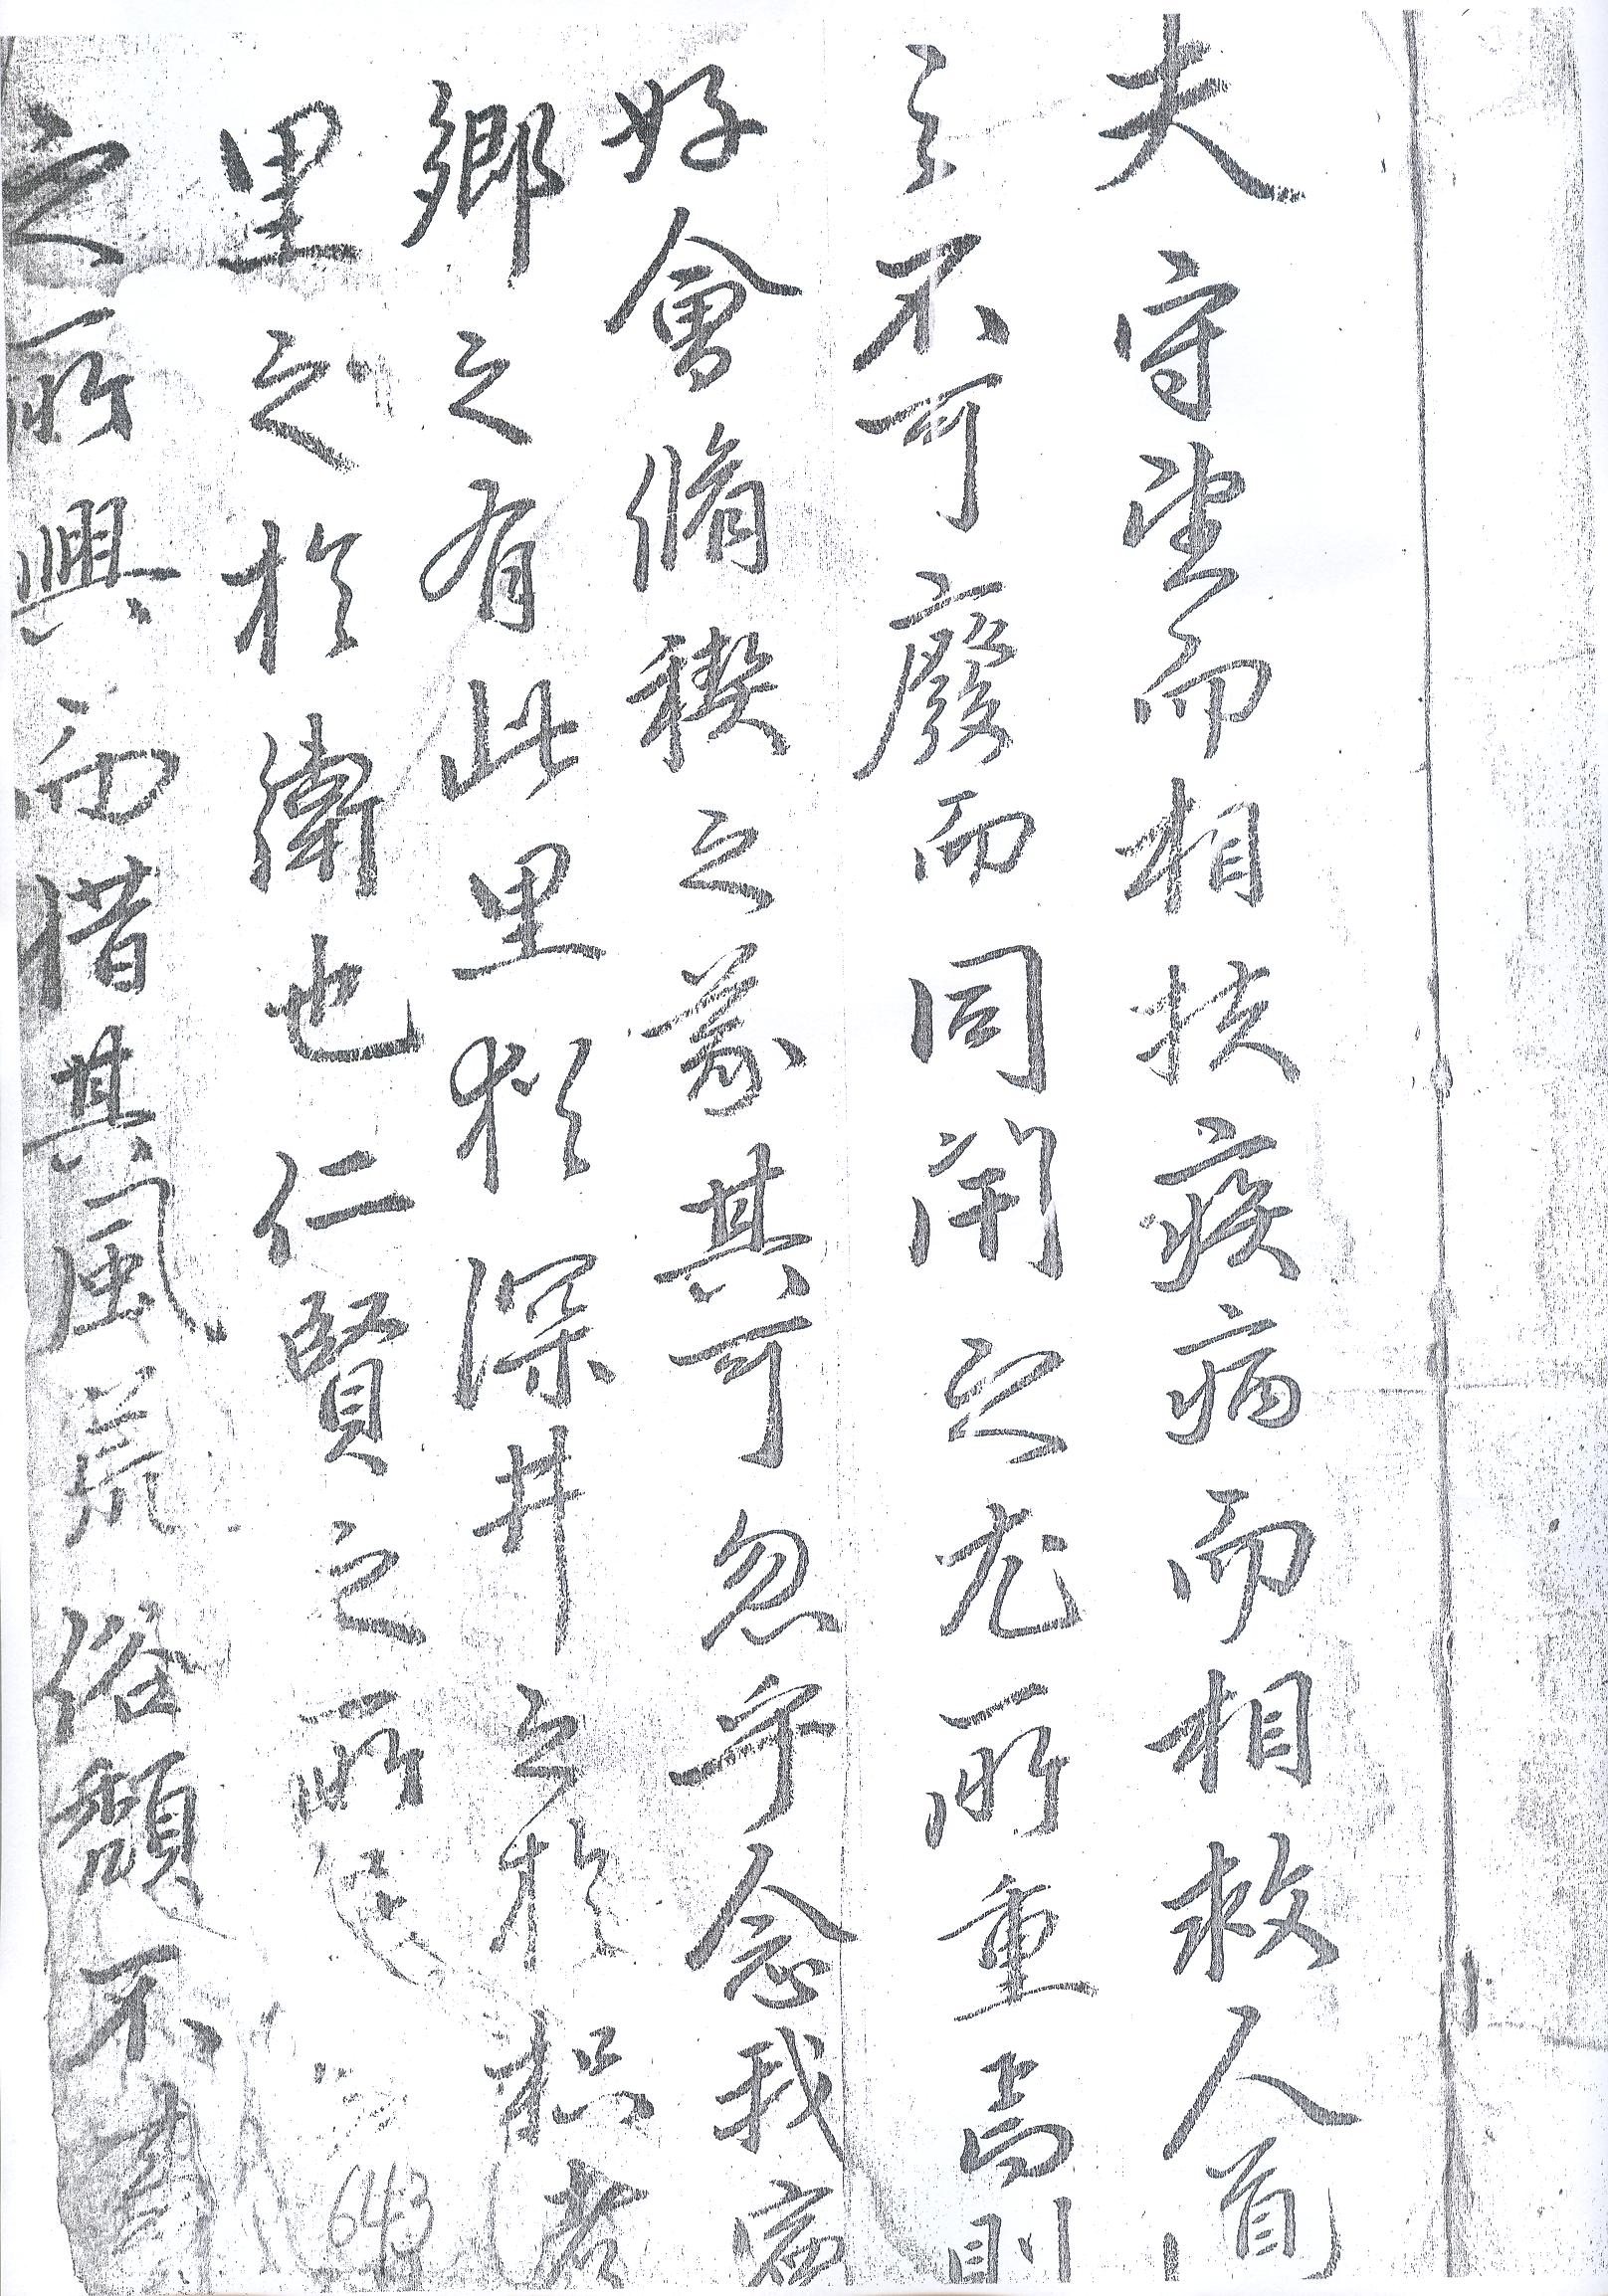 夫守望而相扶疾病而相救人道
之不可廢而同閈之尤所重焉則
好會脩稧之義其可忽乎念我
鄉之有此里猶深井之於耕者
里之於衛也仁賢之所
之所興而惜其風荒俗頹不
643